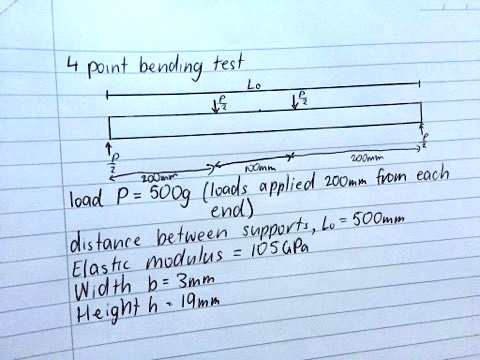 4 point bending test
Lo
P/2 P/2
P/2 P/2
200mm 100mm 200mm
load P = 500g (loads applied 200mm from each
end)
distance between supports, Lo = 500mm
Elastic modulus = 105GPa
Width b = 3mm
Height h = 19mm